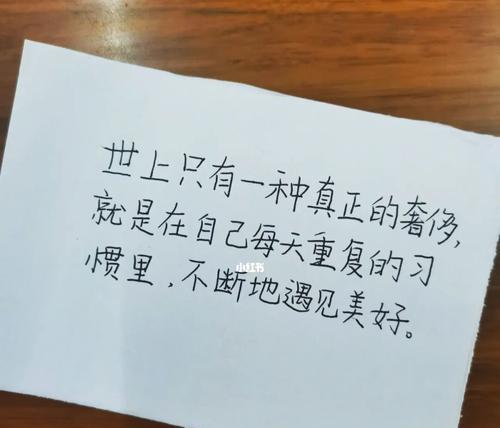 世上只有一种真正的奢侈,
就是在自己每天重复的习
惯里,不断地遇见美好。
小红书